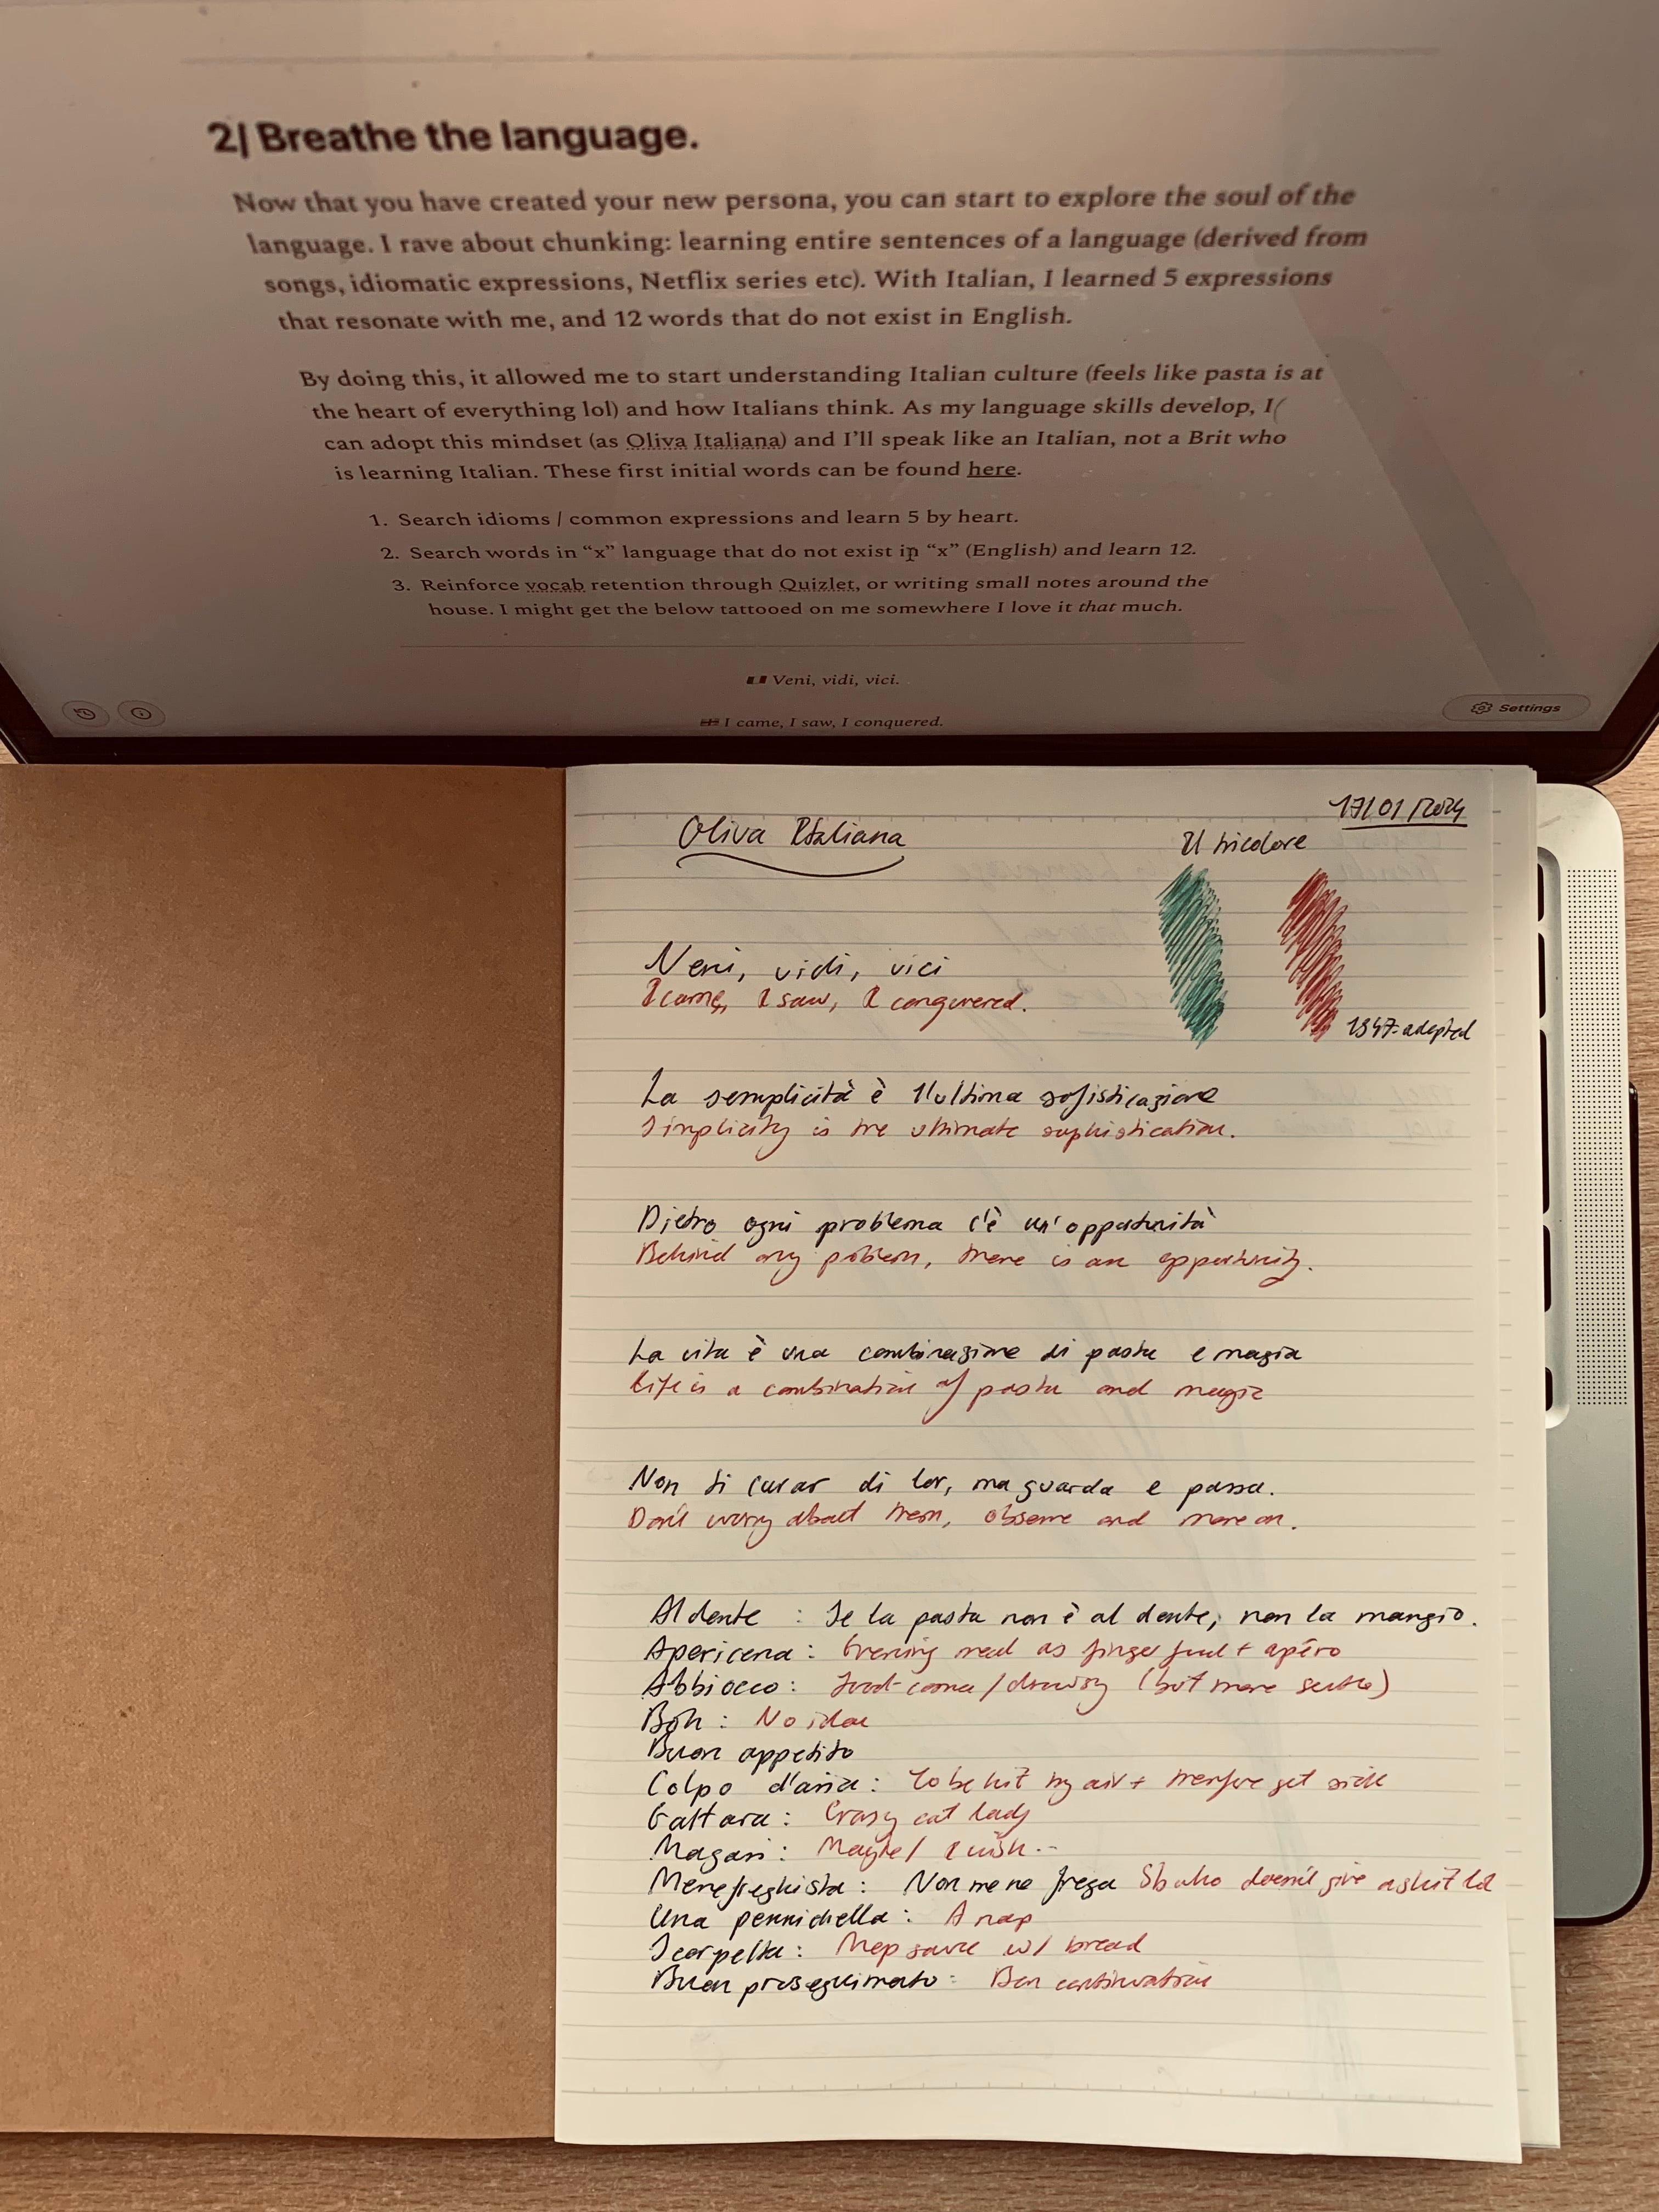 2| Breathe the language.
Now that you have created your new persona, you can start to explore the soul of the
language. I rave about chunking: learning entire sentences of a language (derived from
songs, idiomatic expressions, Netflix series etc). With Italian, I learned 5 expressions
that resonate with me, and 12 words that do not exist in English.
By doing this, it allowed me to start understanding Italian culture (feels like pasta is at
the heart of everything lol) and how Italians think. As my language skills develop, I
can adopt this mindset (as Oliva Italiana) and I’ll speak like an Italian, not a Brit who
is learning Italian. These first initial words can be found here.
1. Search idioms / common expressions and learn 5 by heart.
2. Search words in “x” language that do not exist in “x” (English) and learn 12.
3. Reinforce vocab retention through Quizlet, or writing small notes around the
house. I might get the below tattooed on me somewhere I love it that much.
Veni, vidi, vici.
I came, I saw, I conquered.
Settings
17/01/2024
Oliva Italiana
Il tricolore
Veni, vidi, vici
I came, I saw, I conquered.
adopted
La semplicità è l'ultima sofisticazione
Simplicity is the ultimate sophistication.
Dietro ogni problema c'è un'opportunità
Behind any problem, there is an opportunity.
La vita è una combinazione di pasta e magia
Life is a combination of pasta and magic
Non ti curar di lor, ma guarda e passa.
Don't worry about them, observe and move on.
Al dente : Se la pasta non è al dente, non la mangio.
Apericena : Evening meal as finger food + apéro
Abbiocco : Food-coma/drowsy (but more subtle)
Boh : No idea
Buon appetito
Colpo d'aria : To be hit by air + therefore get sick
Gattara : Crazy cat lady
Magari : Maybe/ I wish..
Menefreghista : Non me ne frega Sb who doesn't give a shit
Una pennichella : A nap
Scarpetta : Mop sauce w/ bread
Buon proseguimento : Bon continuation